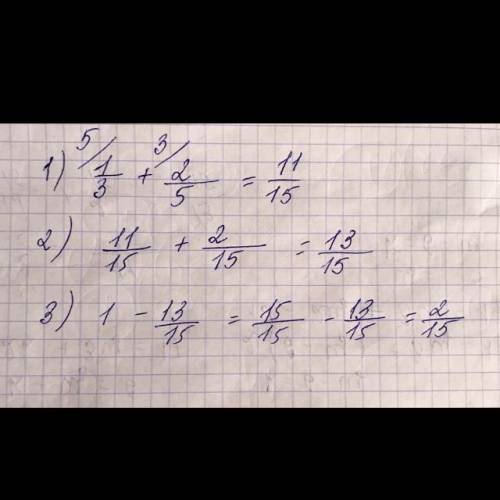 1) ⁵⁄ 1/3 + ³⁄ 2/5 = 11/15
2) 11/15 + 2/15 = 13/15
3) 1 - 13/15 = 15/15 - 13/15 = 2/15